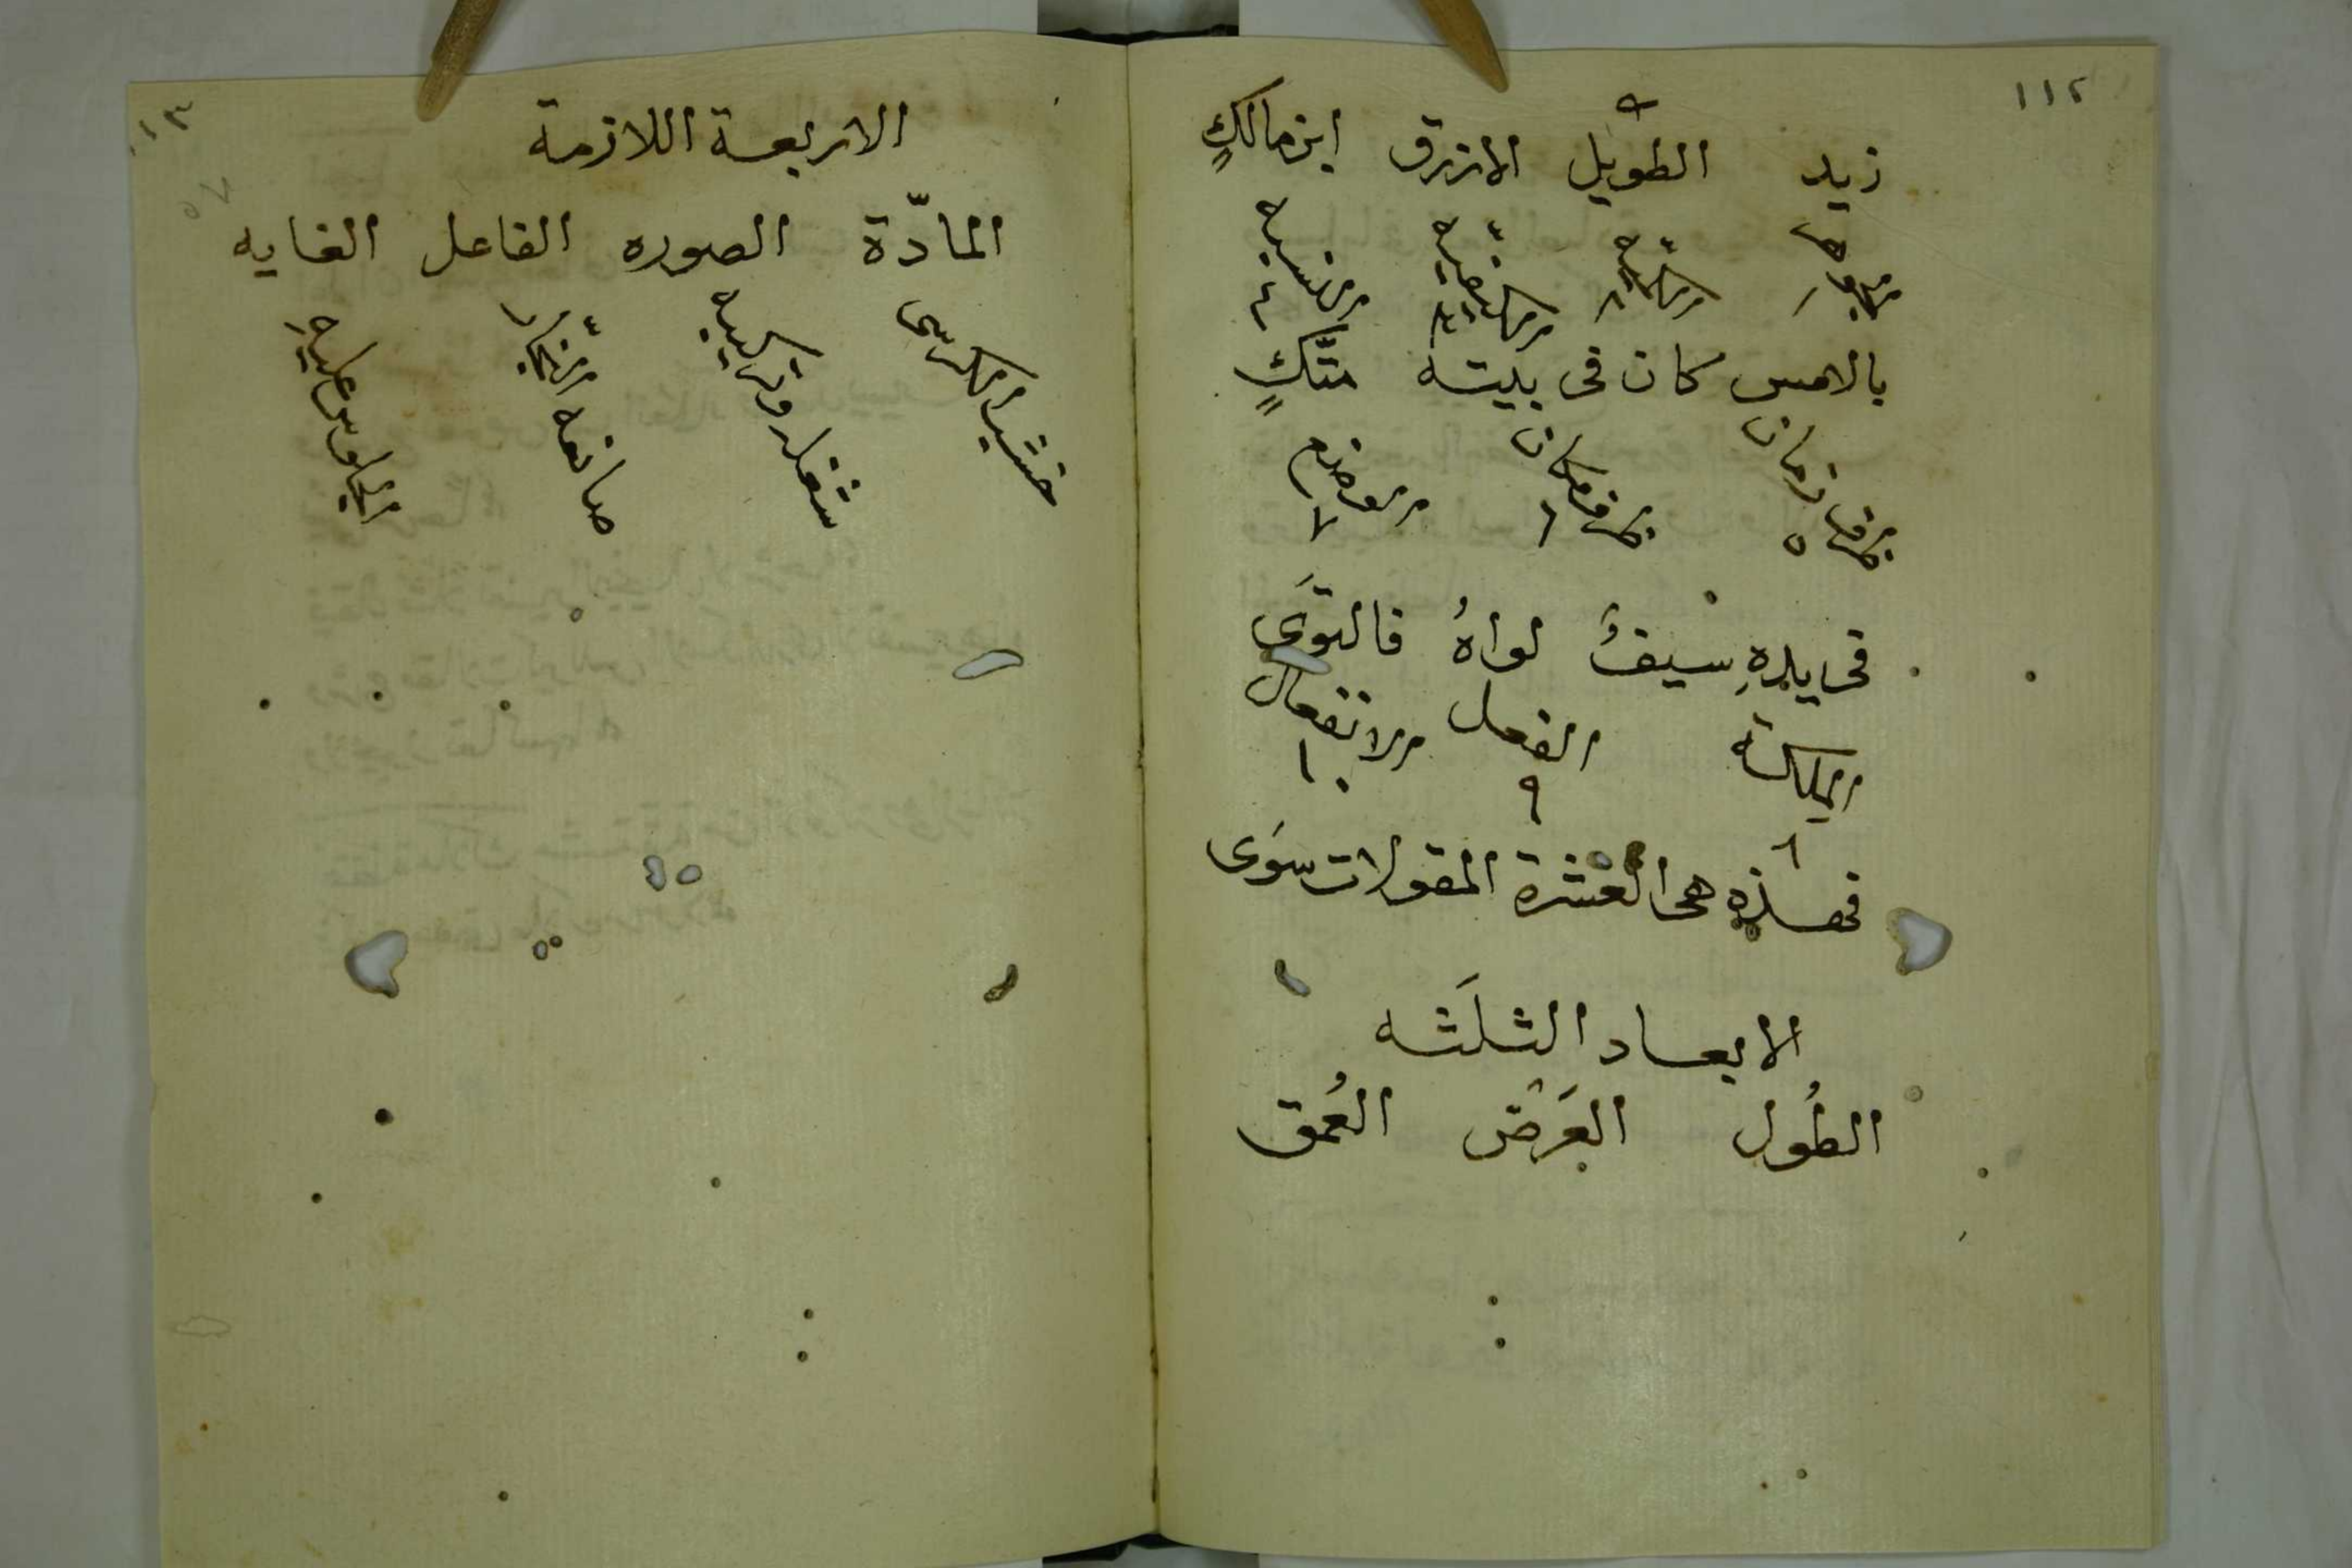 ١١٢
زيد الطويل الازرق ابن مالكٍ
الجوهر الكمّيه الكيفيّه النسبه
١ ٢ ٣ ٤
بالامس كان فى بيته متّكٍ
ظرف زمان ظرف مكان الوضع
٥ ٦ ٧
فى يدهِ سيفٌ لواهُ فالتوَى
الملكة الفعل الانفعال
٨ ٩ ١٠
فهذهِ هى العشرة المقولات سوَى
الابعاد الثلَثه
الطُول العَرْض العُمق
الاربعة اللازمة
المادّة الصوره الفاعل الغايه
خشب الكرسى شغله وتركيبه صانعه النجّار الجلوس عليهِ